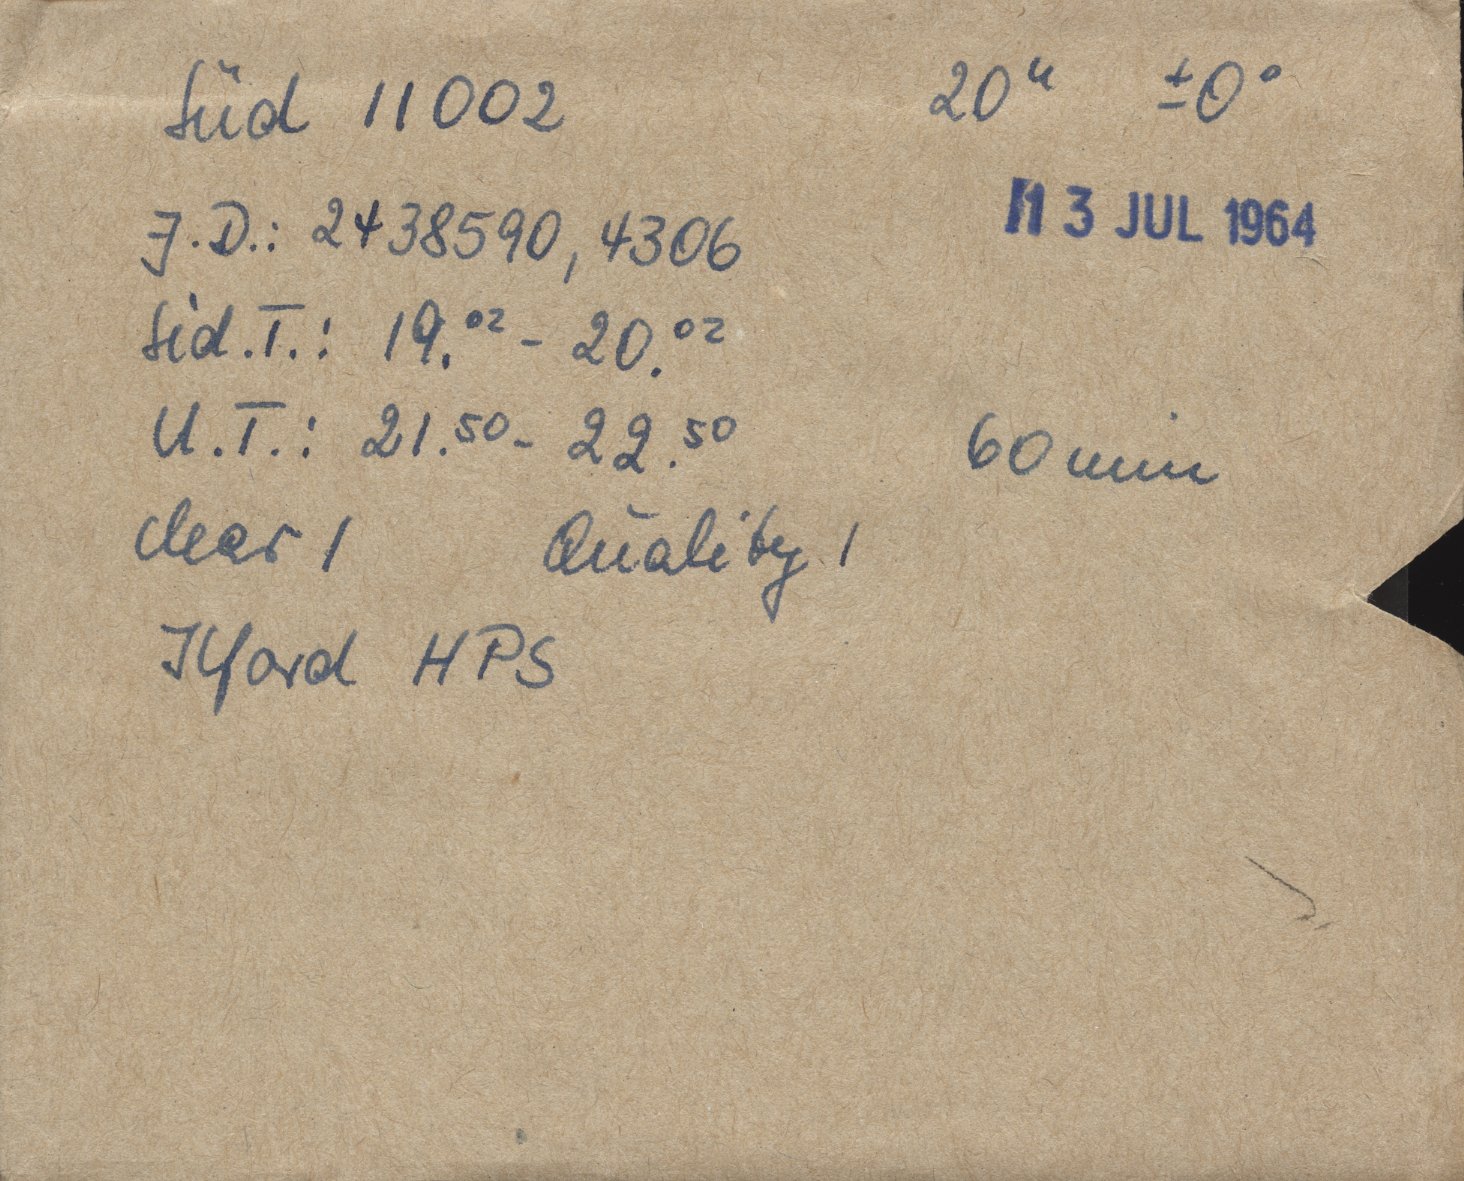 Süd 11002 20ʰ ±0°
13 JUL 1964
J.D.: 2438590,4306
Sid.T.: 19.⁰² - 20.⁰²
U.T.: 21.⁵⁰ - 22.⁵⁰ 60 min
clear 1 Quality 1
Ilford HPS